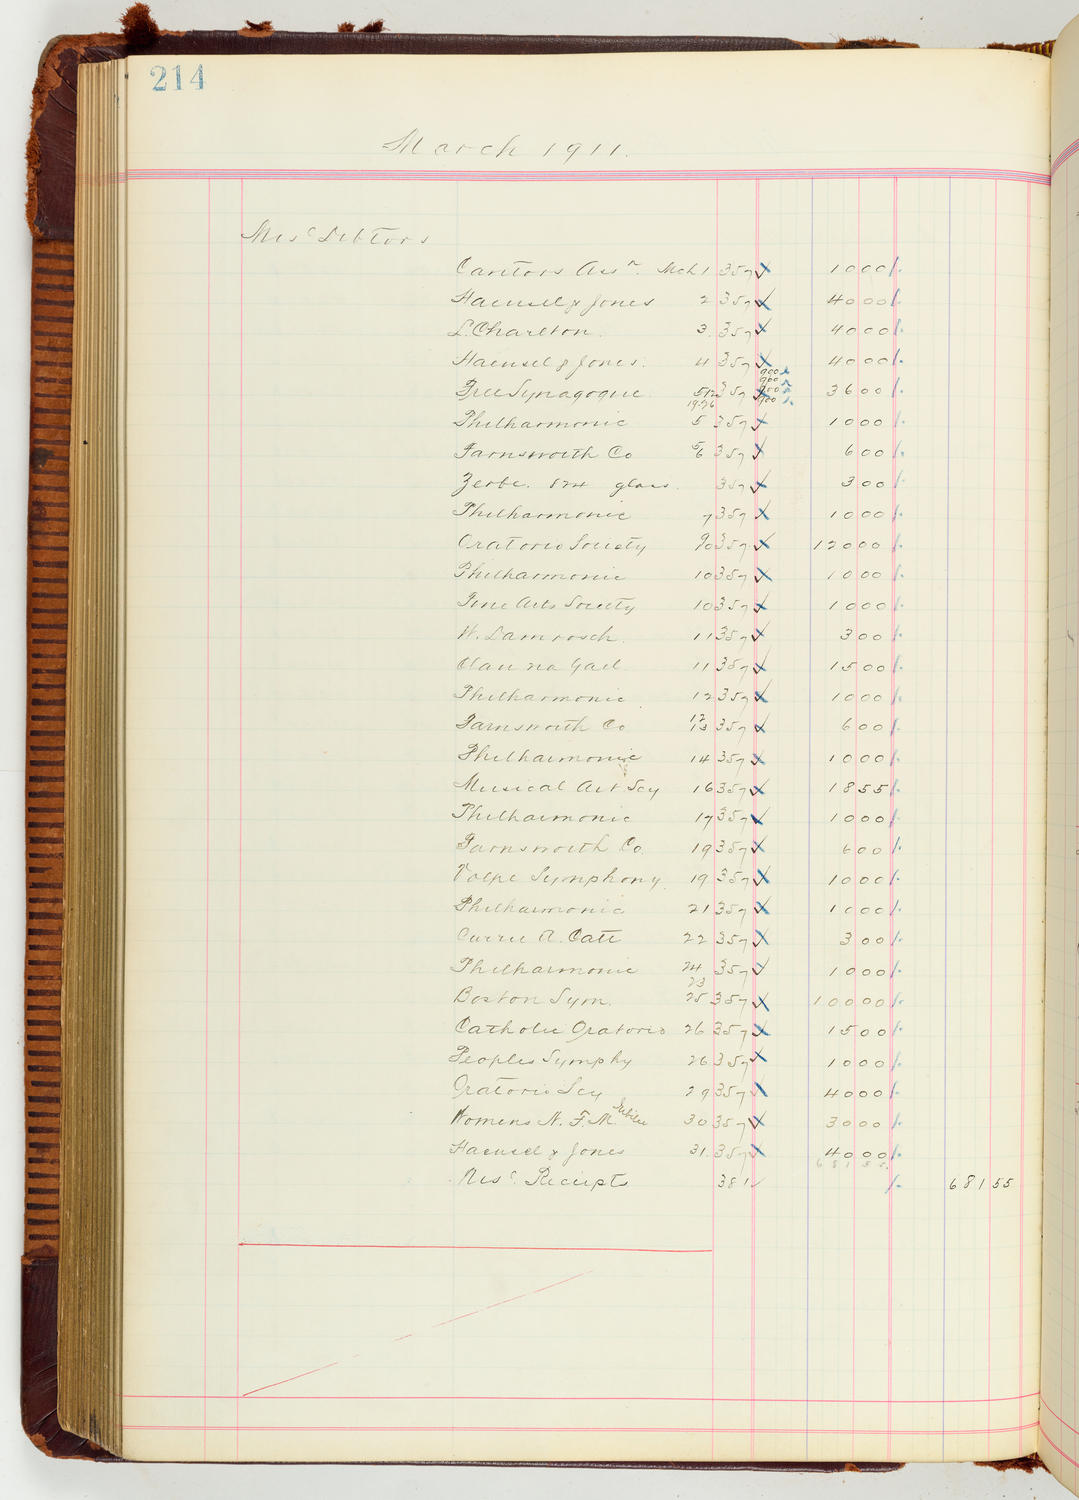 214
March 1911.
Misc Debtors
Cantors Assn. Mch 1 357 1000
Haensel & Jones 2 357 4000
L. Charlton. 3. 357 4000
Haensel & Jones. 4 357 4000
900
900
Free Synagogue 5 12 357 900 3600
19.26 900
Philharmonic 5 357 1000
Farnsworth Co 5/6 357 600
Zerbe. 824 glass. 357 300
Philharmonic 7 357 1000
Oratorio Society 357 12000
Philharmonic 10 357 1000
Fine Arts Society 10 357 1000
W. Damrosch. 11 357 300
Clan na Gael 11 357 1500
Philharmonic 12 357 1000
Farnsworth Co 12/13 357 600
Philharmonic 14 357 1000
Musical Art Scy 16 357 1855
Philharmonic 17 357 1000
Farnsworth Co. 19 357 600
Volpe Symphony. 19. 357 1000
Philharmonic 21 357 1000
Carrie R. Catt 22 357 300
Philharmonic 24 357 1000
23
Boston Sym. 25 357 10000
Catholic Oratorio 26 357 1500
Peoples Symphy 26 357 1000
Oratorio Scy 29 357 4000
Womens N. F. M. Jubilee 30 357 3000
Haensel & Jones 31. 357 4000
68155
Misc. Receipts 381 68155